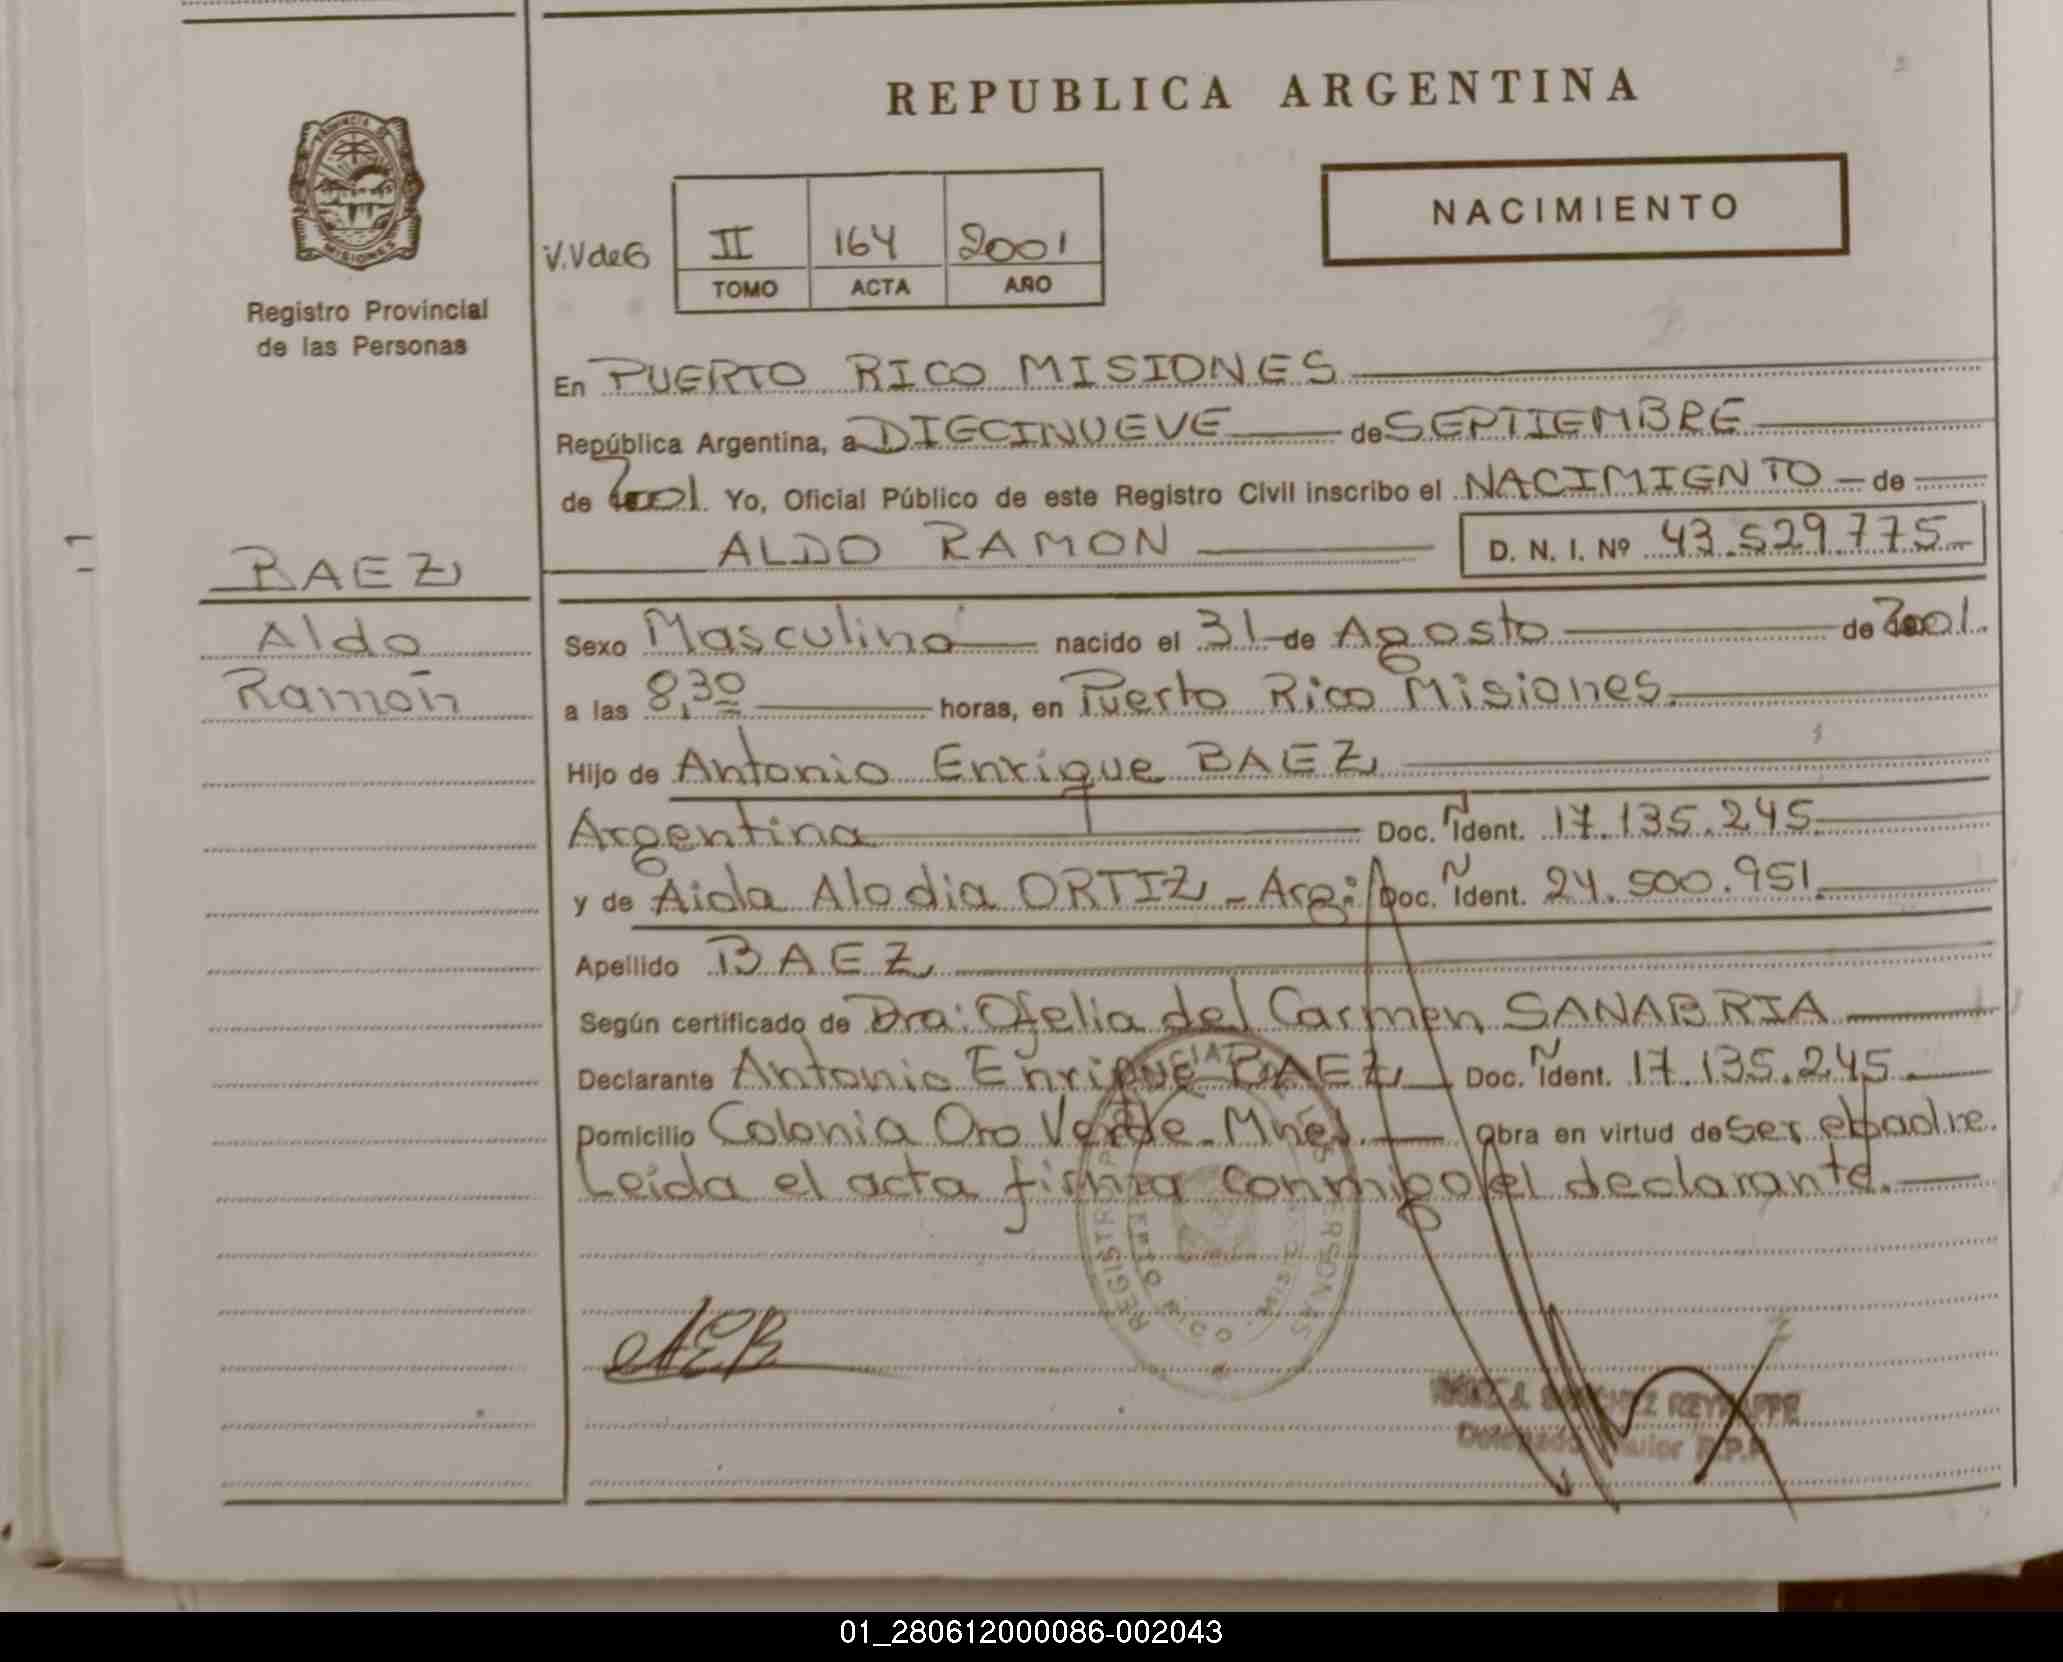 REPUBLICA ARGENTINA
PROVINCIA DE
MISIONES
Registro Provincial
de las Personas
NACIMIENTO
V.V de G
II 164 2001
TOMO ACTA AÑO
En PUERTO RICO MISIONES
República Argentina, a DIECINUEVE de SEPTIEMBRE
de 2001. Yo, Oficial Público de este Registro Civil inscribo el NACIMIENTO de
ALDO RAMON D. N. I. Nº 43.529.775
BAEZ
Aldo
Ramón
Sexo Masculino nacido el 31 de Agosto de 2001.
a las 8,30 horas, en Puerto Rico Misiones.
Hijo de Antonio Enrique BAEZ
Argentina Doc. Ident. 17.135.245
y de Aida Alodia ORTIZ - Arg: Doc. Ident. 24.500.951
Apellido BAEZ
Según certificado de Dra: Ofelia del Carmen SANABRIA
Declarante Antonio Enrique BAEZ Doc. Ident. 17.135.245
Domicilio Colonia Oro Verde - Mnes. Obra en virtud de ser el padre.
Leída el acta firma conmigo el declarante.
AEB
01_280612000086-002043